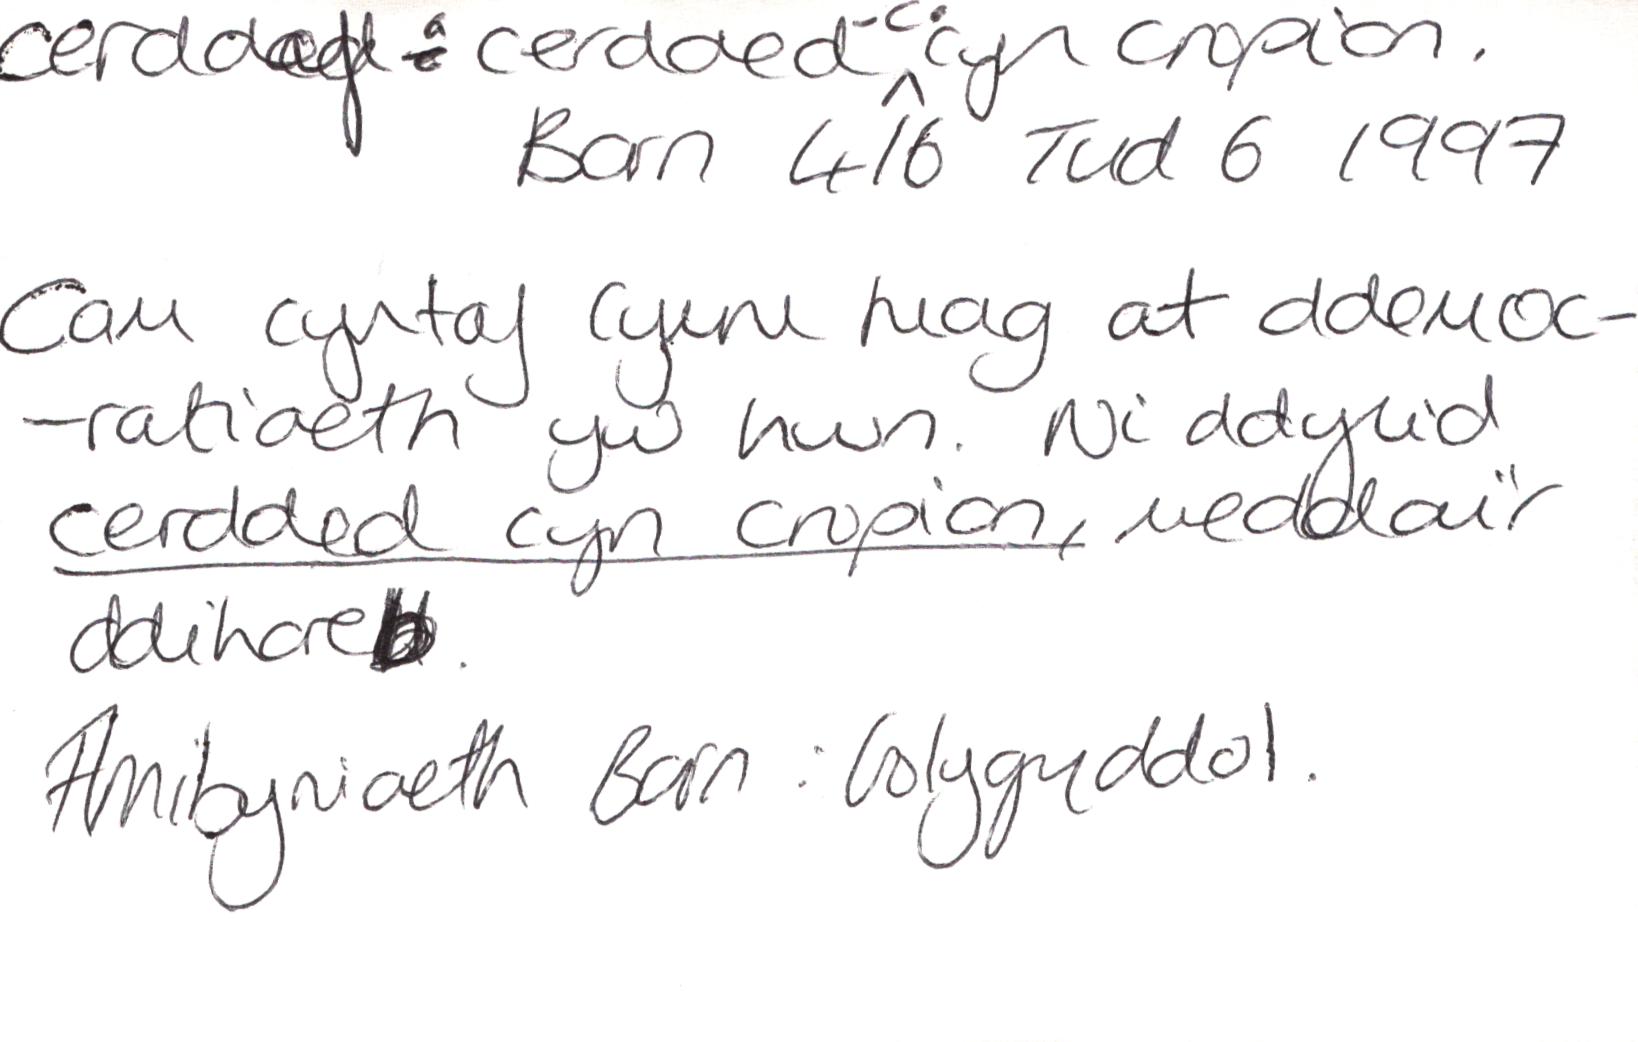 cerddaf : cerdded -c. cyn cropian.
Barn 416 Tud 6 1997
Cam cyntaf Cymru ymlaen at ddemoc-
-ratiaeth yw hwn. Ni ddylid
cerdded cyn cropian, meddai'r
ddihareb.
Annibyniaeth Barn : Golygyddol.